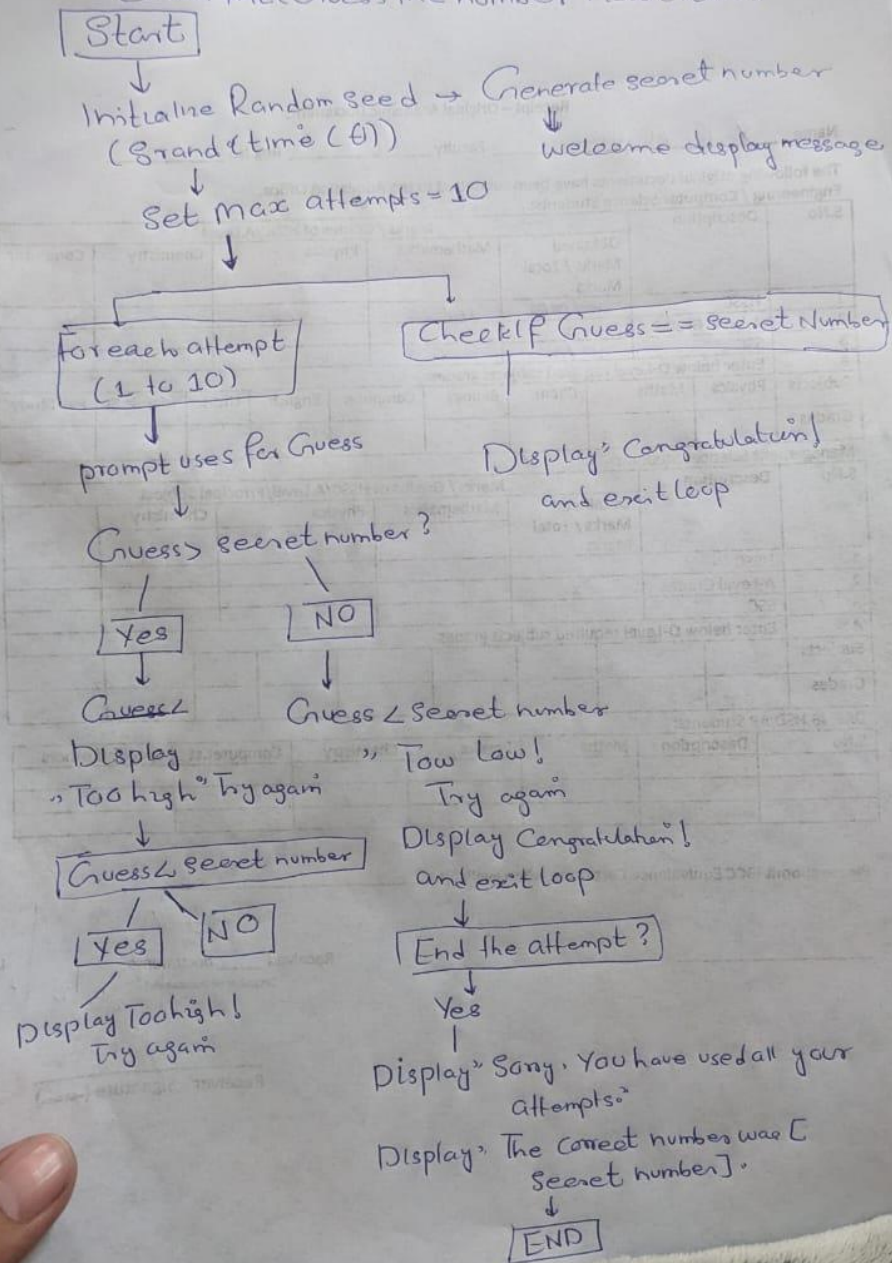 Start
Initialine Random seed → Generate secret number
(Srand (time (0))
welcome display message
Set Max attempts = 10
For each attempt
(1 to 10)
Check If Guess == secret Number
prompt uses for Guess
Display" Congratulation!
and exit loop
Guess > secret number?
Yes
NO
Guess <
Guess < Secret number
Display
"Too high" Try again
" Tow Low!
Try again
Display Congratulation!
and exit loop
Guess < secret number
Yes
NO
End the attempt?
Display Too high!
Try again
Yes
Display" Sorry, You have used all your
attempts."
Display" The correct number was [
Secret number].
END